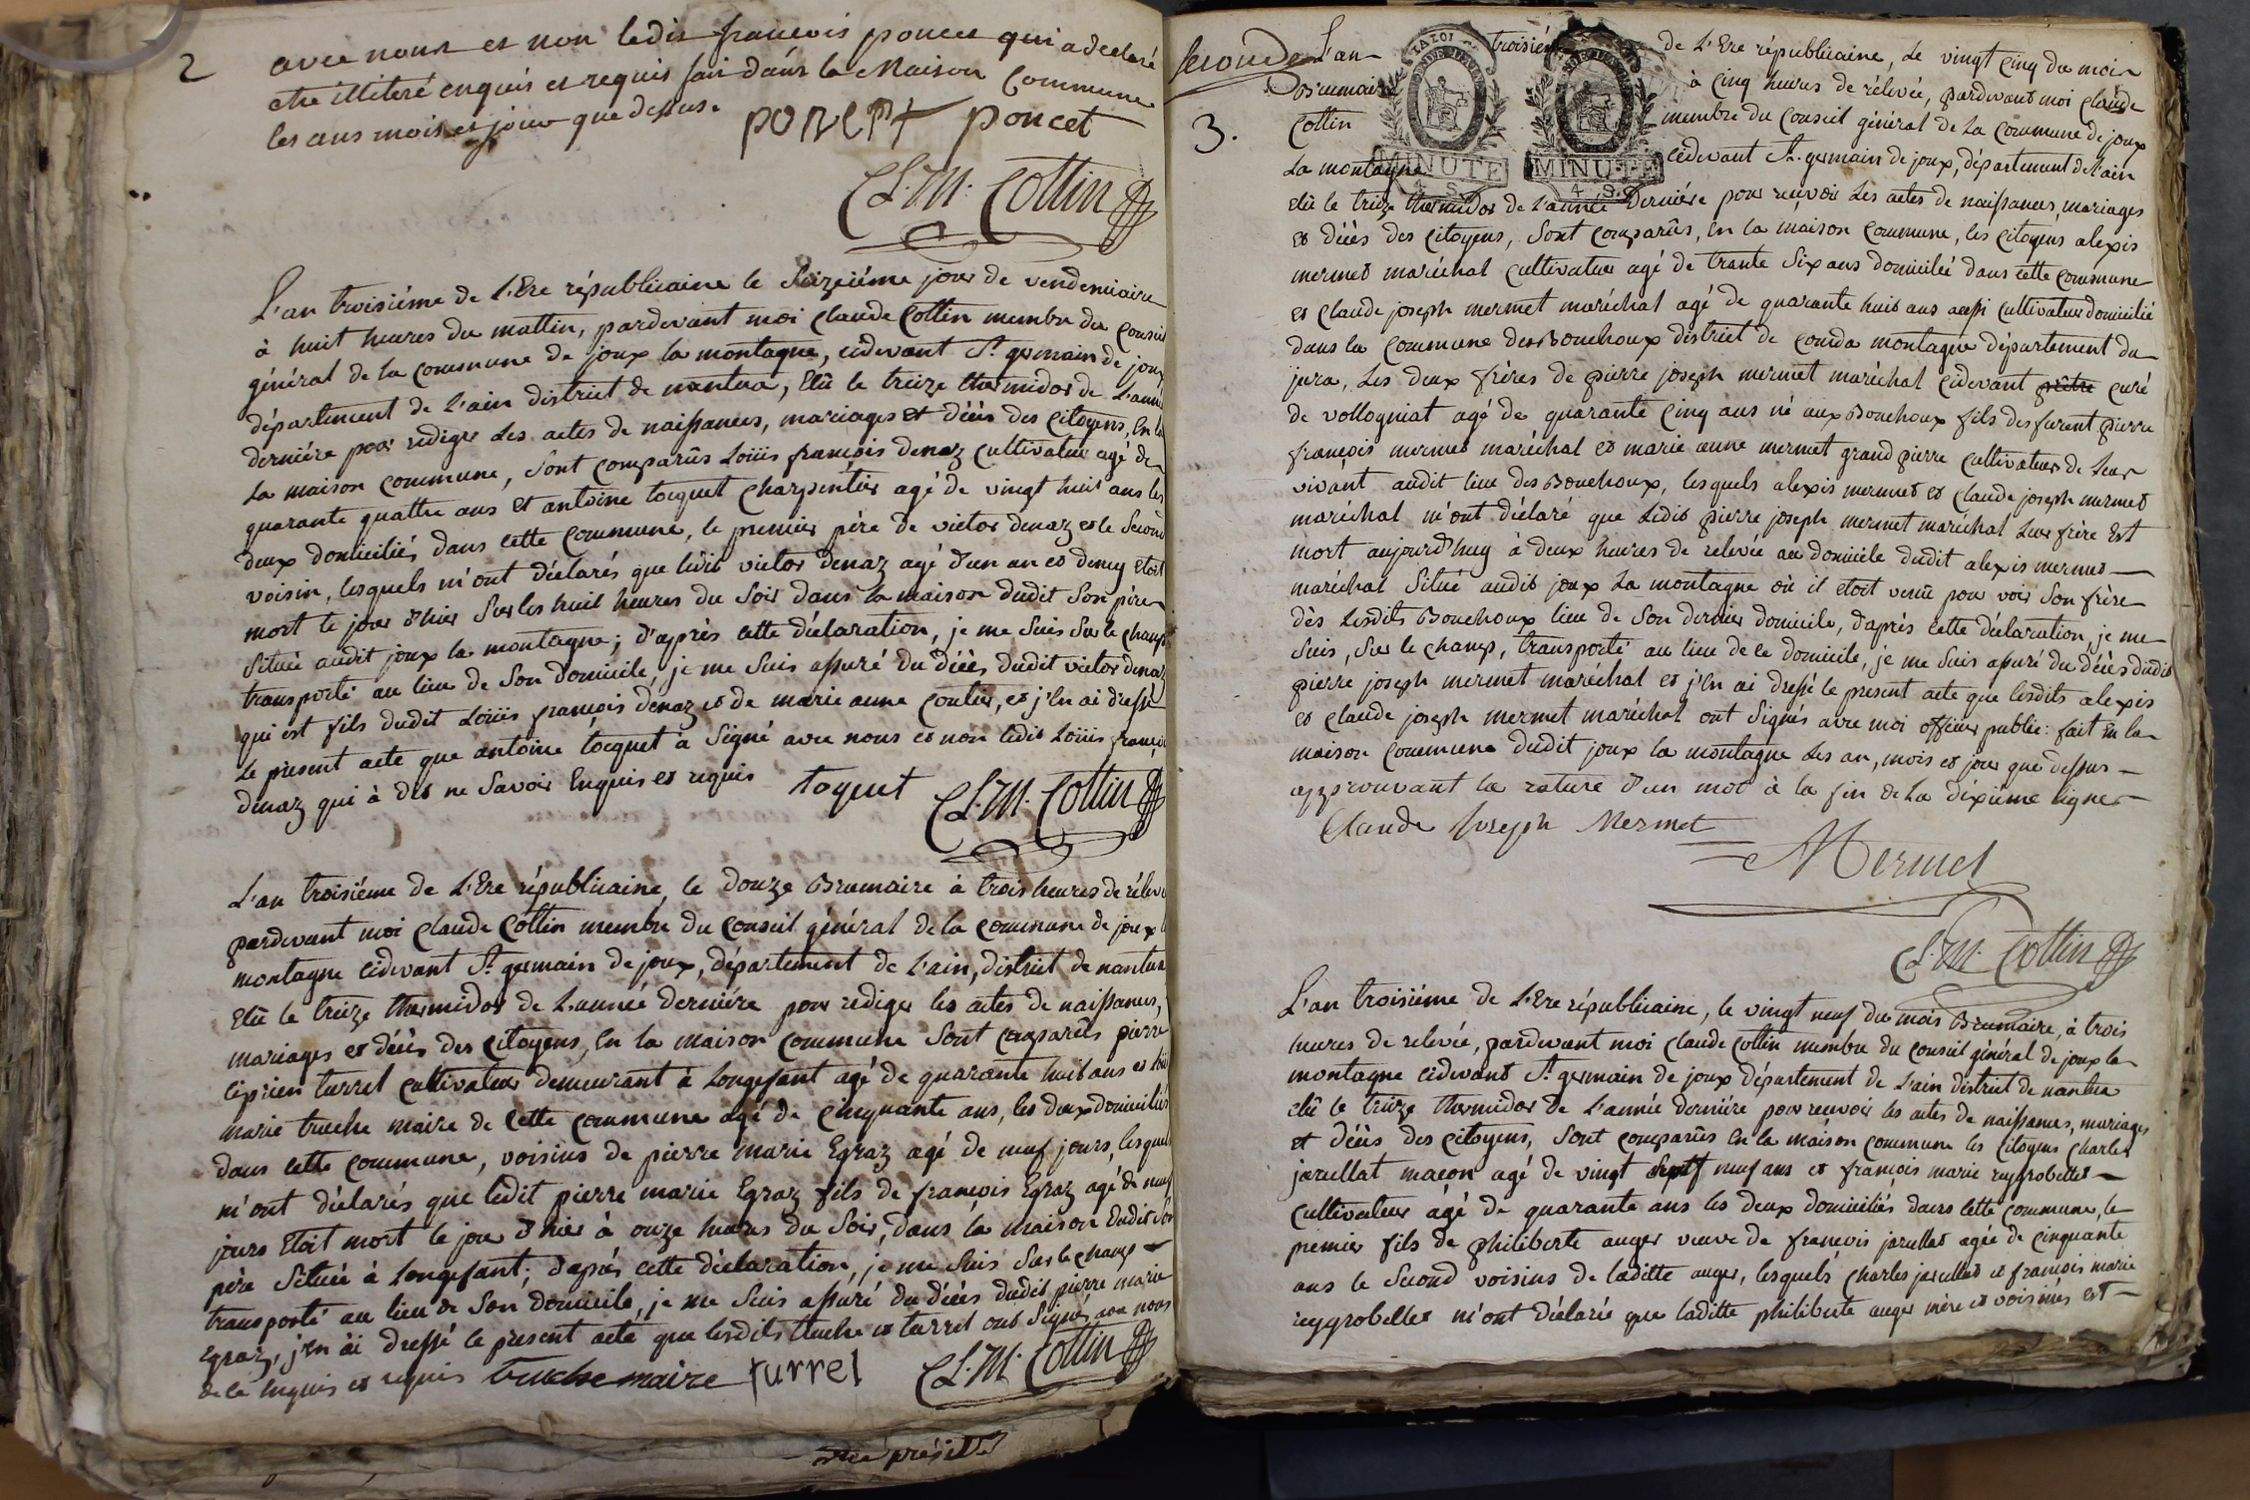 2
avec nous et non ledit françois poncet qui a declaré
etre illiteré enquis et requis fait dans la Maison Commune
les ans mois et jour que dessus.
poncet poncet
Cl. M. Cottin
L'an troisiéme de L'Ere républicaine le Seizeiéme jour de vendemiaire
à huit heures du mattin, pardevant moi Claude Cottin membre du Conseil
général de la commune de joux la montagne, cidevant St. germain de joux
département de L'ain district de nantua, Elû le treize thermidor de L'année
derniére pour rediger Les actes de naissances, mariages et décès des Citoyens, En la
La maison commune, Sont comparûs Loüis françois denaz cultivateur agé de
quarante quattre ans Et antoine tocquet Charpentier agé de vingt huit ans les
deux domiciliés dans cette commune, le premier pére de victor denaz et le Second
voisin, lesquels m'ont déclarés que ledit victor denaz agé d'un an et demy étoit
mort le jour d'hier Sur les huit heures du Soir dans la maison dudit Son pére
Située audit joux la montagne; d'après cette déclaration, je me Suis Sur le champ
transporté au lieu de Son domicile, je me Suis assuré du décès dudit victor denaz
qui est fils dudit Loüis françois denaz et de marie anne coutier, et j'En ai dressé
Le present acte que antoine tocquet à Signé avec nous et non ledit Loüis françois
denaz qui à dit ne Savoir Enquis et requis toquet Cl. M. Cottin
L'an troisiéme de L'Ere républicaine, le douze Brumaire à trois heures de rélevé
pardevant moi Claude Cottin membre du Conseil général de la commune de joux la
montagne cidevant St. germain de joux, département de L'ain, district de nantua
Elû le treize thermidor de L'année derniére pour rediger les actes de naissances,
mariages et décès des Citoyens, En la maison commune Sont comparûs pierre
ciprien turrel cultivateur demeurant à Longefant agé de quarante huit ans et Loüis
marie truche maire de cette commune agé de cinquante ans, les deux domiciliés
dans cette commune, voisins de pierre marie Egraz agé de neuf jours, lesquels
m'ont déclarés que ledit pierre marie Egraz fils de françois Egraz agé de neuf
jours Etoit mort le jour d'hier à onze heures du Soir, dans la maison dudit Son
pére Située à Longefant; d'après cette déclaration, je me Suis Sur le champ
transporté au lieu de Son domicile, je me Suis assuré du décès dudit pierre marie
Egraz, j'En ai dressé le present acte que lesdits truche et turrel ont Signés avec nous
de ce Enquis et requis truche maire turrel Cl. M. Cottin
Seconde
3.
L'an troisiéme de L'Ere républicaine, Le vingt Cinq du mois
Brumaire à Cinq heures de rélevée, pardevant moi Claude
Cottin membre du Conseil général de La commune de joux
La montagne cidevant St. germain de joux, département de L'ain
LA LOI
MINUTE
4 S.
MINUTE
4 S.
Elû le treize thermidor de L'année Derniére pour recevoir Les actes de naissances, mariages
et décès des Citoyens, Sont comparûs, En la maison commune, les Citoyens alexis
mermet maréchal cultivateur agé de trante Six ans domicilié dans cette commune
et Claude joseph mermet maréchal agé de quarante huit ans aussi cultivateur domicilié
dans la commune des Bouchoux district de conda montagne département du
jura, Les deux frères de pierre joseph mermet maréchal cidevant prêtre curé
de vollogniat agé de quarante Cinq ans né aux Bouchoux fils des furent pierre
françois mermet maréchal et marie anne mermet grand pierre cultivateurs de Leur
vivant audit lieu des Bouchoux, lesquels alexis mermet et claude joseph mermet
maréchal m'ont déclaré que Ledit pierre joseph mermet maréchal Leur frère Est
mort aujourd'huy à deux heures de relevée au domicile dudit alexis mermet
maréchal Situé audit joux La montagne où il etoit venû pour voir Son frère
dès Lesdits Bouchoux lieu de Son dernier domicile, d'après cette déclaration, je me
Suis, Sur le champ, transporté au lieu de ce domicile, je me Suis assuré du décès dudit
pierre joseph mermet maréchal et j'En ai dressé le present acte que lesdits alexis
et claude joseph mermet maréchal ont Signés avec moi officier public: fait En la
maison commune dudit joux la montagne Les an, mois et jour que dessus
approuvant la rature d'un mot à la fin de La dixieme Ligne
Claude Joseph Mermet
Mermet
Cl. M. Cottin
L'an troisiéme de L'Ere républicaine, le vingt neuf du mois Brumaire, à trois
heures de relevée, pardevant moi Claude Cottin membre du Conseil général de joux la
montagne cidevant St. germain de joux département de L'ain district de nantua
elû le treize thermidor de L'année derniére pour recevoir les actes de naissances, mariages
et décès des Citoyens, Sont comparûs En la maison commune les Citoyens Charles
jarullat maçon agé de vingt neuf ans et françois marie reygrobellet
Cultivateur âgé de quarante ans les deux domiciliés dans cette commune, le
premier fils de philiberte auger veuve de françois jarullat agée de cinquante
ans le Second voisins de laditte auger, lesquels charles jarullat et françois marie
reygrobellet m'ont déclarés que laditte philiberte auger mère et voisines est